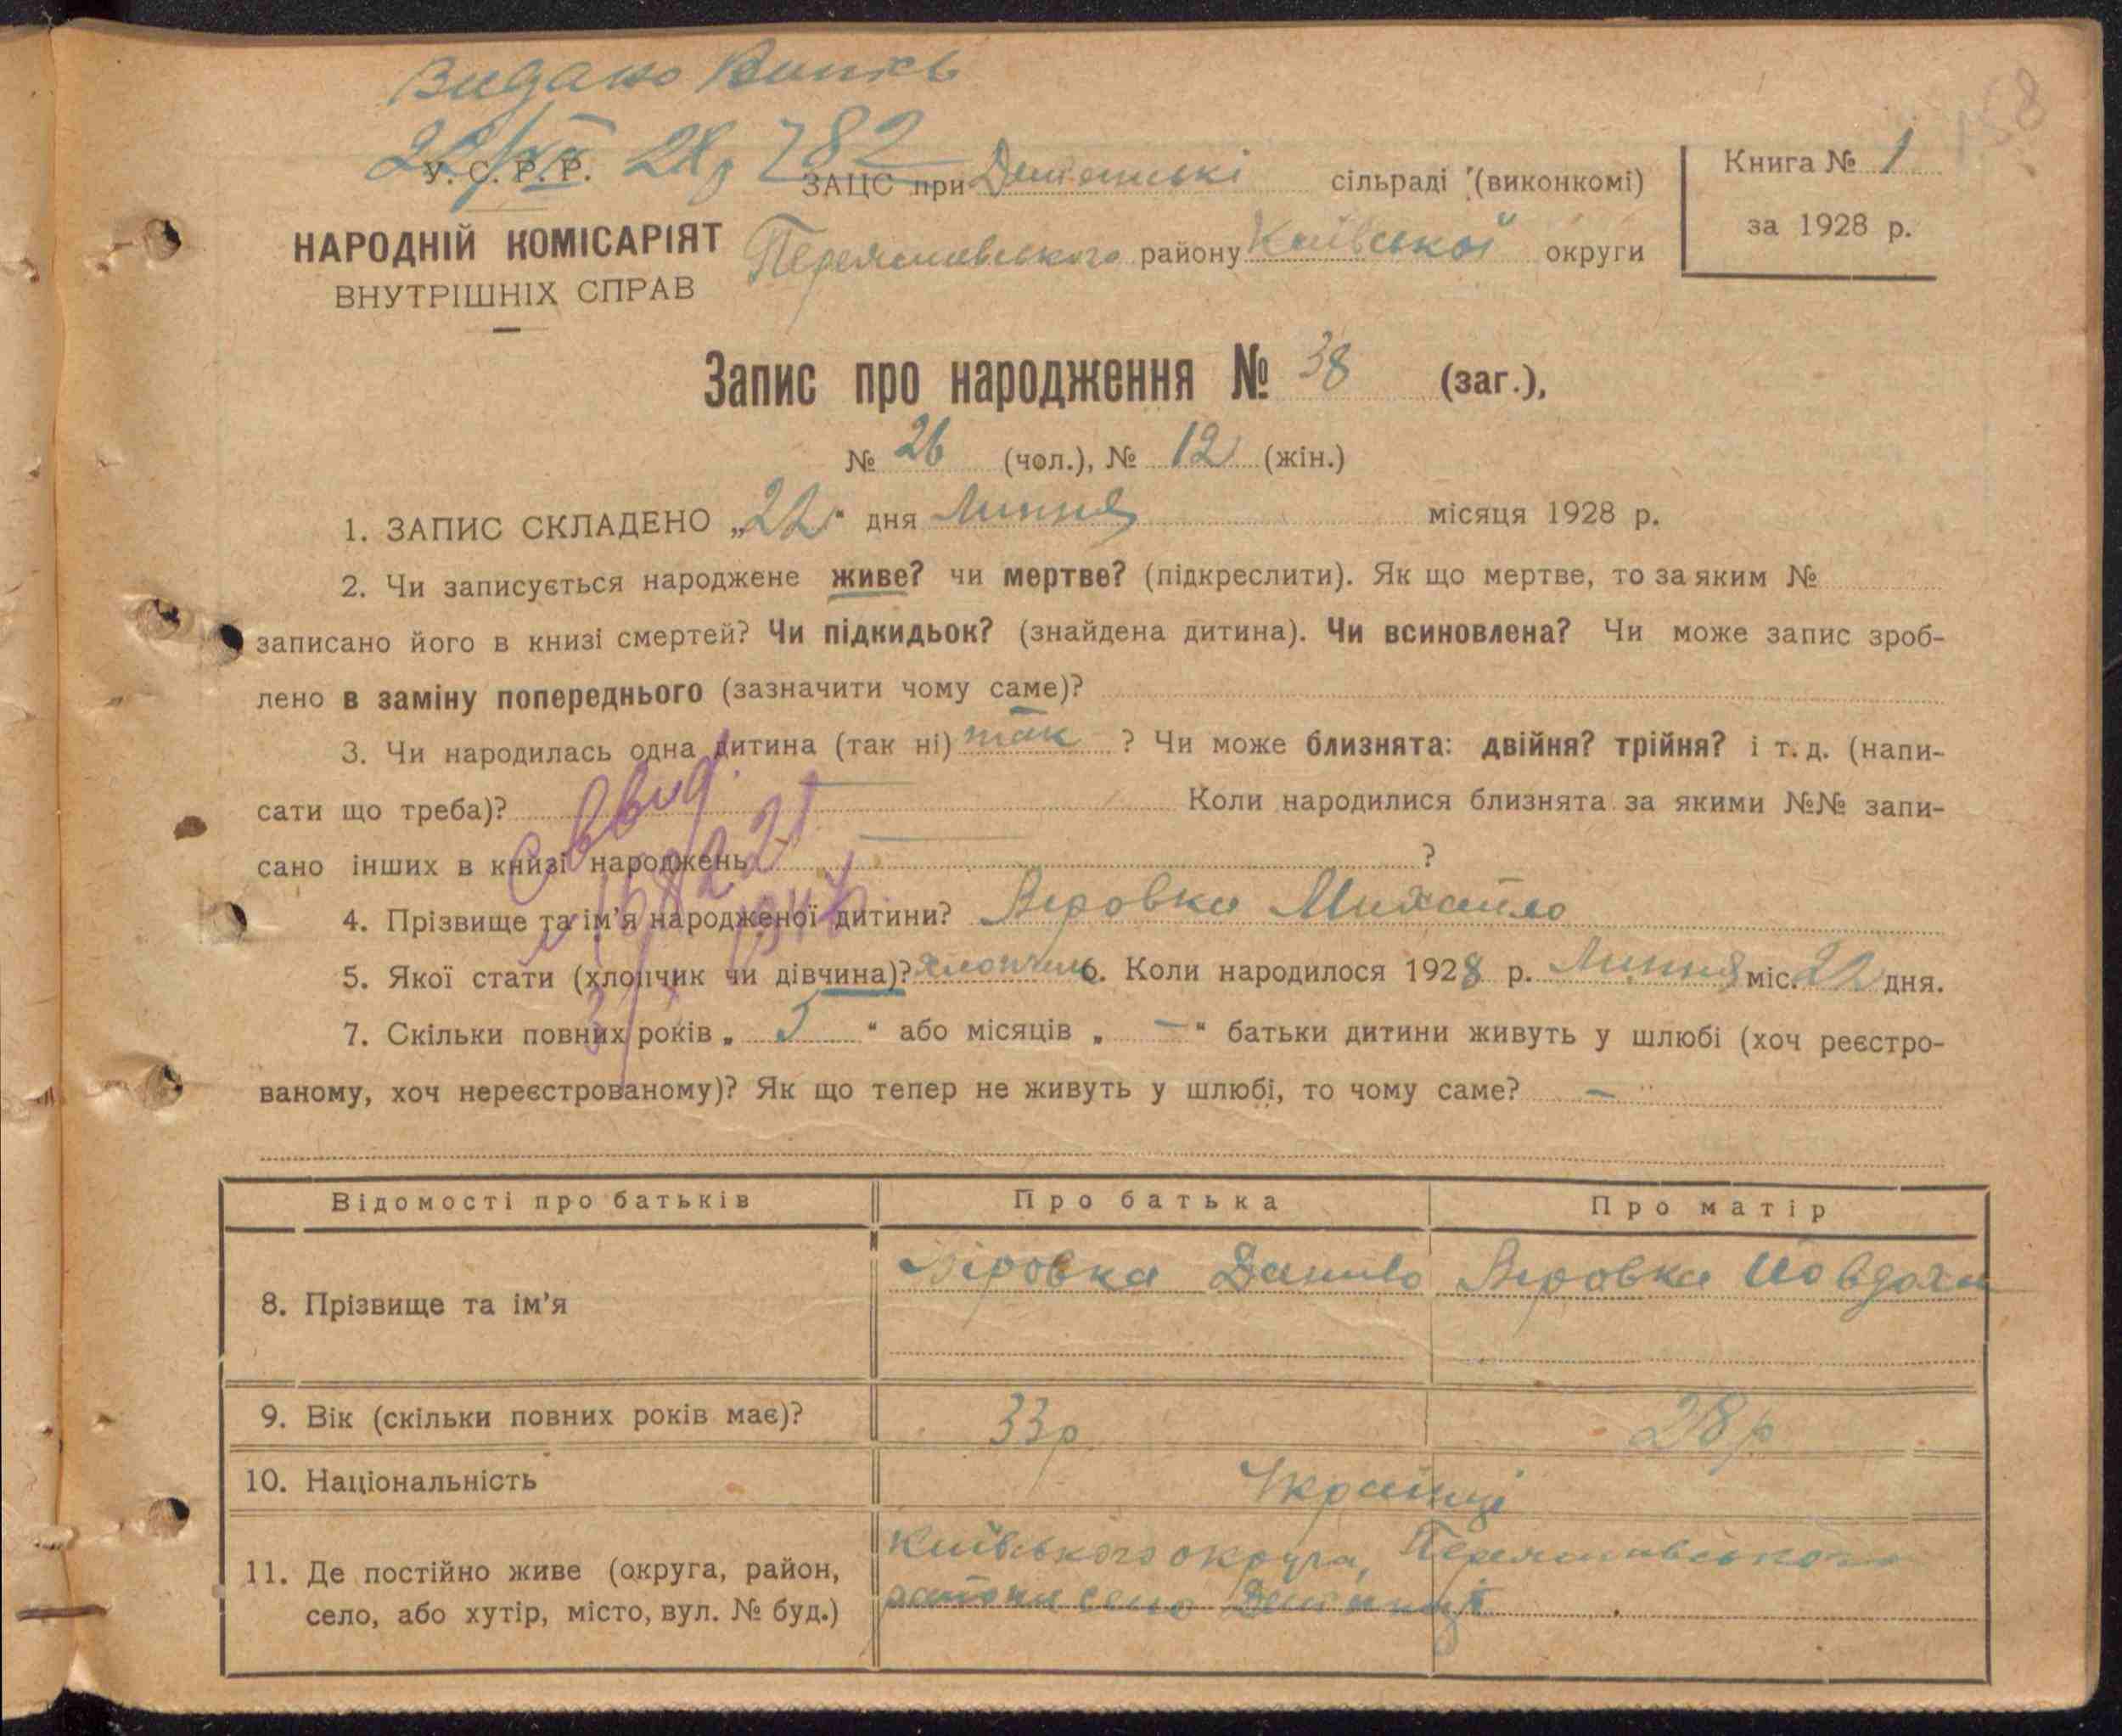 Видано Випись
22/XII 28 р 782
158
У. С. Р. Р.
НАРОДНІЙ КОМІСАРІЯТ
ВНУТРІШНІХ СПРАВ
ЗАЦС при сільраді (виконкомі)
Переяславського району Київської округи
Книга № 1
за 1928 р.
Запис про народження № 38 (заг.),
№ 26 (чол.), № 12 (жін.)
1. ЗАПИС СКЛАДЕНО „22" дня Липня місяця 1928 р.
2. Чи записується народжене живе? чи мертве? (підкреслити). Як що мертве, то за яким №
записано його в книзі смертей? Чи підкидьок? (знайдена дитина). Чи всиновлена? Чи може запис зроб-
лено в заміну попереднього (зазначити чому саме)?
3. Чи народилась одна дитина (так ні) так ? Чи може близнята: двійня? трійня? і т. д. (напи-
сати що треба)? — Коли народилися близнята за якими №№ запи-
сано інших в книзі народжень — ?
4. Прізвище та ім'я народженої дитини? Віровка Михайло
5. Якої стати (хлопчик чи дівчина)? хлопчик 6. Коли народилося 1928 р. Липня міс. 22 дня.
7. Скільки повних років „ 5 " або місяців „ — " батьки дитини живуть у шлюбі (хоч реєстро-
ваному, хоч нереєстрованому)? Як що тепер не живуть у шлюбі, то чому саме? —
Відомості про батьків Про батька Про матір
8. Прізвище та ім'я Віровка Данило Віровка Йовдоха
9. Вік (скільки повних років має)? 33 р 28 р
10. Національність Українці
11. Де постійно живе (округа, район,
село, або хутір, місто, вул. № буд.)
Київського округа, Переяславського
району село